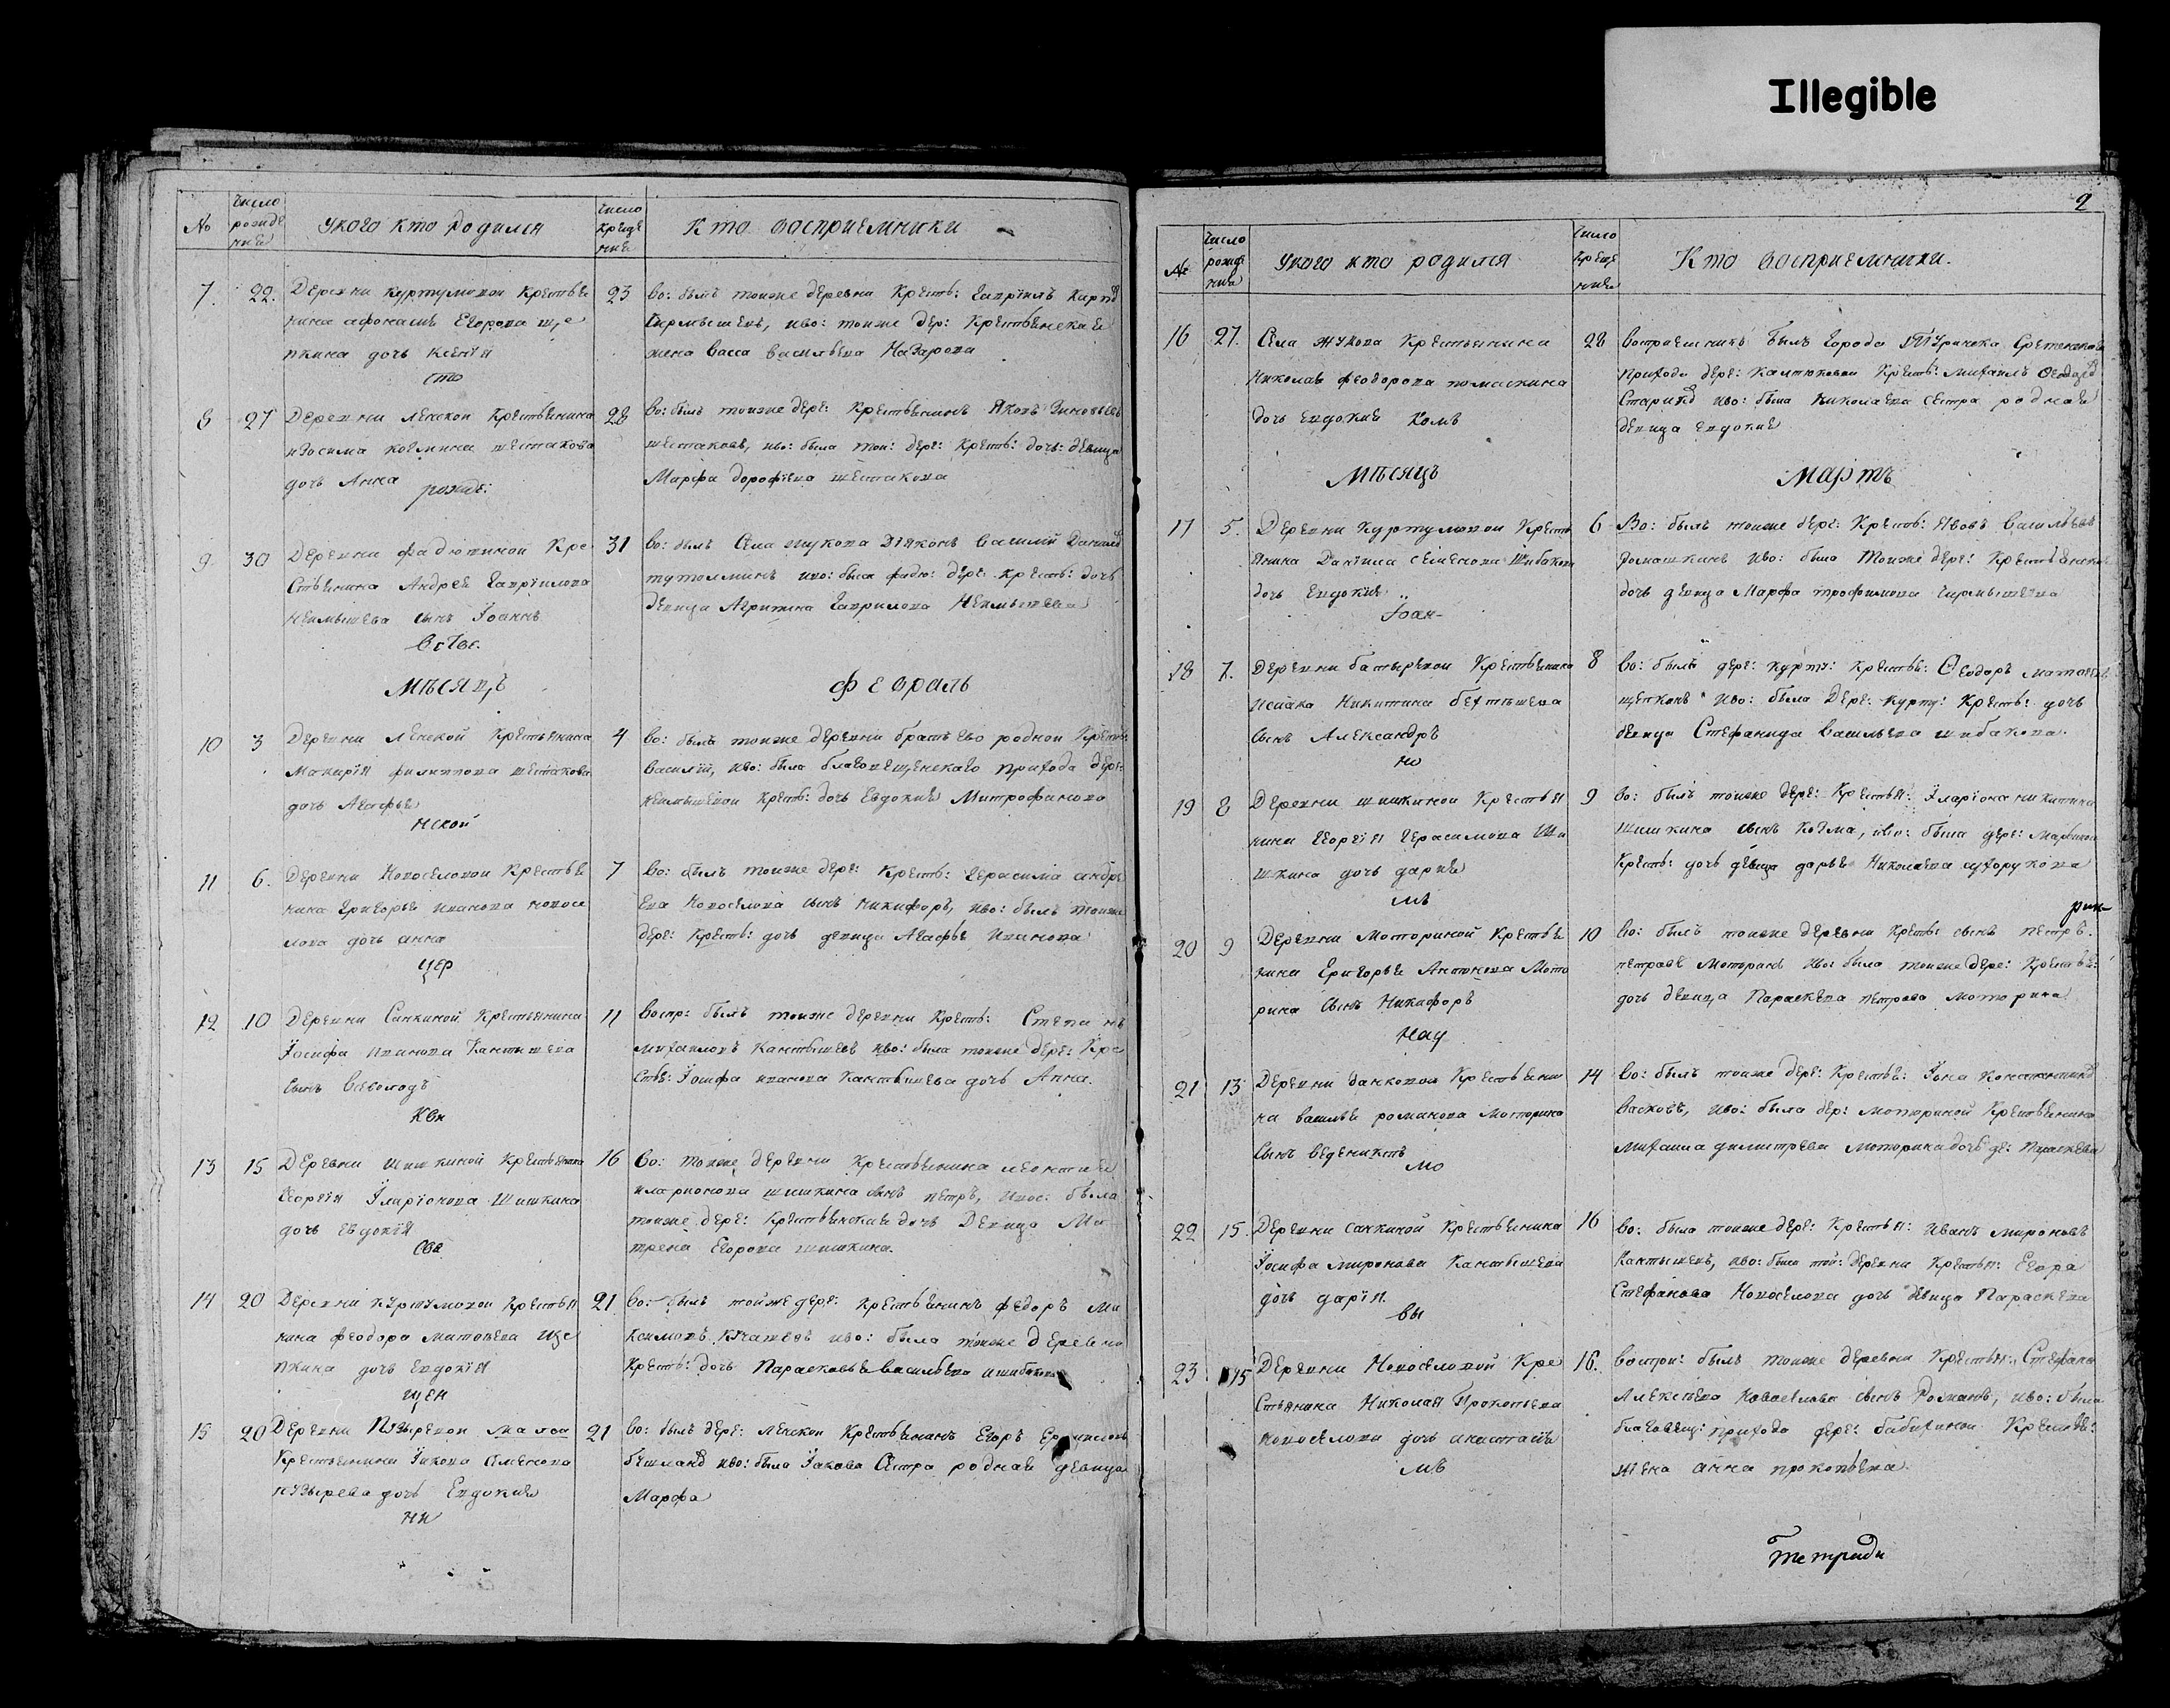 Illegible
2
№
число рожде ния
у кого кто родился
число креще ния
кто восприемники
7.
22.
Деревни куртумовой Крестья
нина афонасья Егорова ще
пкина дочь ксенїя
сто
23
во: былъ тоиже деревни Кресть: гаврїилъ
жена васса васильева Назарова
8
27
Деревни Ленской Крестьянина
изосима козмина шестакова
дочь Анна
рожде:
28
во: былъ тоиже дере: Крестьянинъ Яковъ Зиновьевъ
шестаковъ, иво: была тои: дере: Кресть: дочь: девица
Марфа дорофїева шестакова
9
30
Деревни фадюшиной Кре
стьянина Андрея гаврїилова
сынъ Їоаннъ
31
во: былъ Села жукова Дїяконъ василїй
тутолминъ иво: была фадю: дере: Кресть: дочь
девица Агрипина гаврилова
Мѣсяцъ
февраль
10
3
Деревни Ленской Крестьянина
Макарїя филиппова шестакова
дочь Агафья
нской
4
во: былъ тоиже деревни братъ его родной
василїй, иво: была благовещенскаго прихода дере:
Кресть: дочь Евдокия Митрофанова
11
6.
Деревни Новоселовой Крестья
нина григорья иванова новосе
лова дочь анна
цер
7
во: былъ тоиже дере: Кресть: герасима андре
ева Новоселова сынъ никифоръ, иво: былъ тоиже
дере: Кресть: дочь девица Агафья Иванова
12
10
Деревни Санкиной Крестьянина
Їосифа иванова Кантышева
сынъ Всеволодъ
11
воспр: былъ тоиже деревни Кресть: Степанъ
михаиловъ Кантышевъ иво: была тоиже дере: Кре
стья: Їосифа иванова Кантышева дочь Анна.
13
15
Деревни Шишкиной Крестьянина
Георгїя Їларїонова Шишкина
дочь Евдокїя
16
во: тоиже деревни Крестьянина леонтия
иларионова шишкина сынъ петръ, была
тоиже дере: Крестьянская дочь Девица Ма
трена Егорова шишкина.
14
20
Деревни куртумовой Крестья
нина феодора матвеева Ще
пкина дочь Евдокїя
щен
21
во: былъ тойже дере: крестьянинъ федоръ Ма
ксимовъ иво: была тоиже деревни
Кресть: дочь Парасковья васильева шибакова
15
20
Деревни Пузыревой малой
Крестьянина Їакова Семенова
пузырева дочь Евдокия
ни
21
во: былъ дере: ленской Крестьянинъ Егоръ
иво: была Їакова Сестра родная девица
Марфа
№
число рожде ния
у кого кто родился
число креще ния
Кто восприемники.
16
27.
Села жукова Крестьянина
Николая феодорова
дочь Евдокия
28
восприемникъ былъ города Туринска Сретенскаго
прихода дере: Кресть: михаилъ
иво: была николаева сестра родная
девица Евдокия
Мѣсяцъ
Мартъ
17
5.
Деревни Куртумовой Кресть
янина Данїила семенова Шибакова
дочь Евдокия
Їоан-
6
Во: былъ тоиже дере: Кресть:
ромашкинъ иво: была тоиже дере:
дочь девица Марфа трофимова
18
7.
Деревни батыревой Крестьянина
исаака Никитина
сынъ Александръ
но
8
во: былъ дере: курту: кресть: Феодоръ
щепкинъ иво: была Дере: курту: Кресть: дочь
девица Стефанида васильева шибакова.
19
8
Деревни шишкиной Крестья
нина георгїя герасимова Ши
шкина дочь дария
мъ
9
во: былъ тоиже дере: Крестья: Їларїона никитина
Шишкина сынъ Козма, иво: была дере:
Кресть: дочь девица дарья Николаева сухорукова
20
9
Деревни Моториной Крестья
нина Григорья Мото
рина сынъ Никифоръ
нау
10
рин-
во: былъ тоиже деревни Кресть: сынъ петръ
петровъ Моторинъ иво: была тоиже дере: Крестья:
дочь девица Параскева петрова моторина
21
13
Деревни данковой Крестьяни
на василья романова моторина
сынъ ведениктъ
мо
14
во: былъ тоиже дере: Крестья: Їона
васковъ, иво: была дер: моториной Крестьянина
Михаила димитрева моторина дочь де: Параскева
22
15.
Деревни санкиной Крестьянина
Їосифа миронова Кантышева
дочь дарїя
вы
16
во: была тоиже дере: Крестья: Иванъ мироновъ
Кантышевъ, иво: была той: деревни Крестья: Егора
Стефанова Новоселова дочь девица Параскева
23
15
Деревни Новоселовой Кре
стьянина Николая Прокопьева
новоселова дочь анастасїя
мъ
16.
воспри: былъ тоиже деревни Крестья: Стефана
Алексеева Новоселова сынъ Романъ, иво: была
благовещ: прихода дере: бабихиной
жена анна прокопьева.
тетради